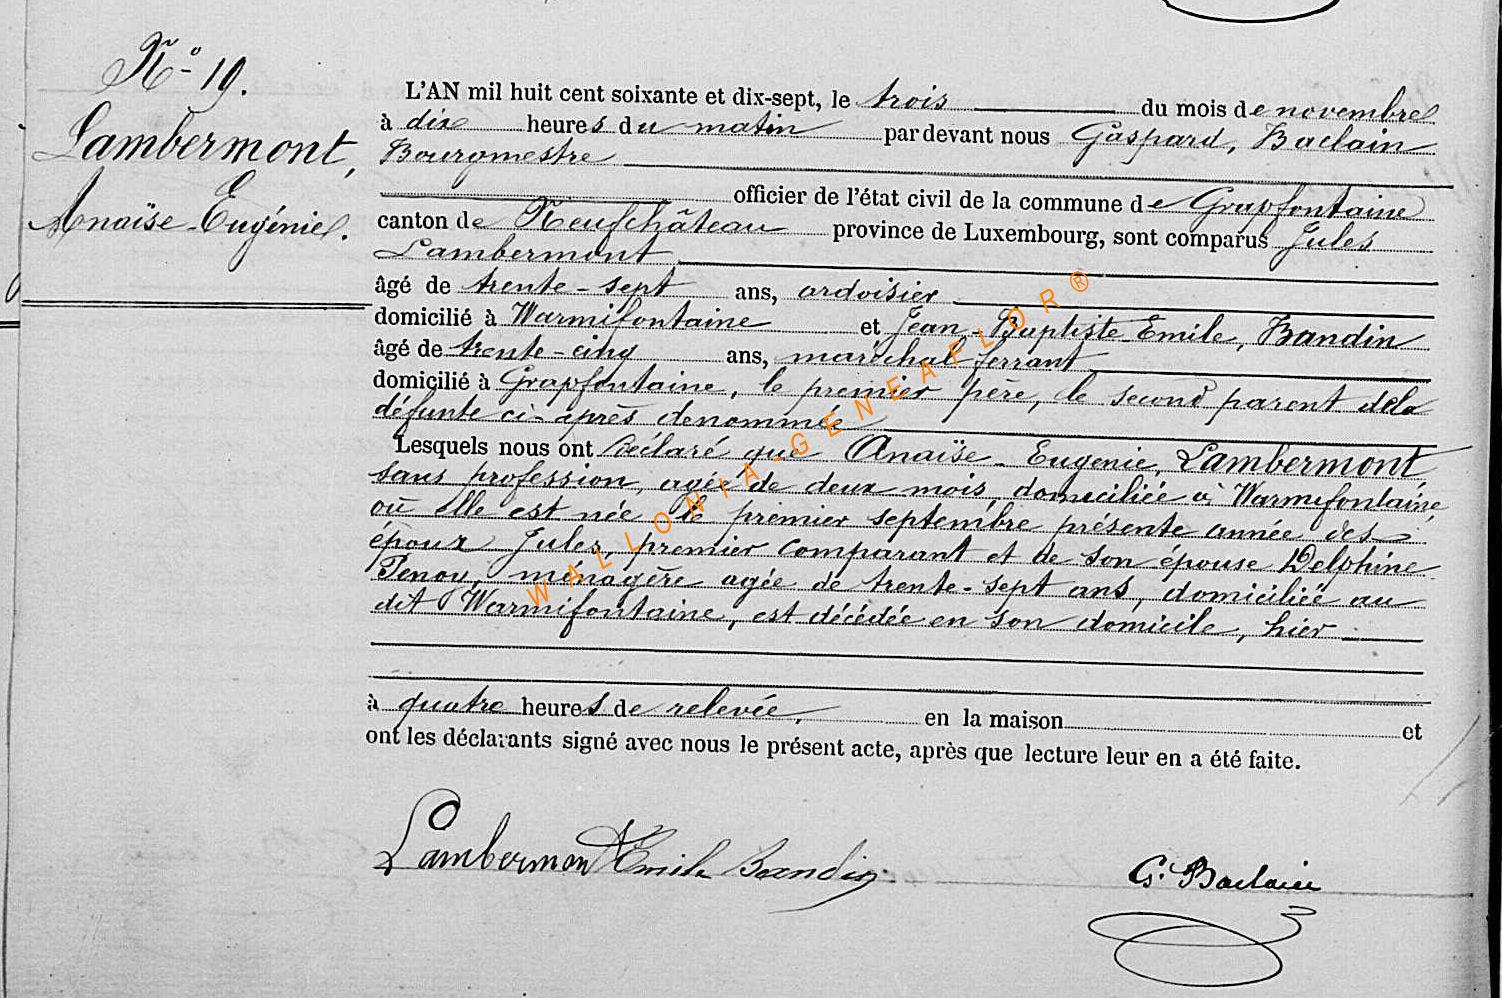 N° 19.
Lambermont,
Anaïse-Eugénie.
L'AN mil huit cent soixante et dix-sept, le trois du mois de novembre
à dix heures du matin par devant nous Gaspard, Baclain
Bourgmestre
officier de l'état civil de la commune de Grapfontaine
canton de Neufchâteau province de Luxembourg, sont comparus Jules
Lambermont
âgé de trente-sept ans, ardoisier
domicilié à Warmifontaine et Jean-Baptiste Emile, Bandin
âgé de trente-cinq ans, maréchal-ferrant
domicilié à Grapfontaine, le premier père, le second parent de la
défunte ci-après denommée
Lesquels nous ont déclaré que Anaïse-Eugenie, Lambermont
sans profession, agée de deux mois, domiciliée à Warmifontaine,
où elle est née le premier septembre présente année des
époux Jules, premier comparant et de son épouse Delphine
Penoy, ménagère agée de trente-sept ans, domiciliée au
dit Warmifontaine, est décédée en son domicile, hier
à quatre heures de relevée, en la maison et
ont les déclarants signé avec nous le présent acte, après que lecture leur en a été faite.
Lambermont Emile Bandin G. Baclain
WALLONIA-GENEAFLOR®